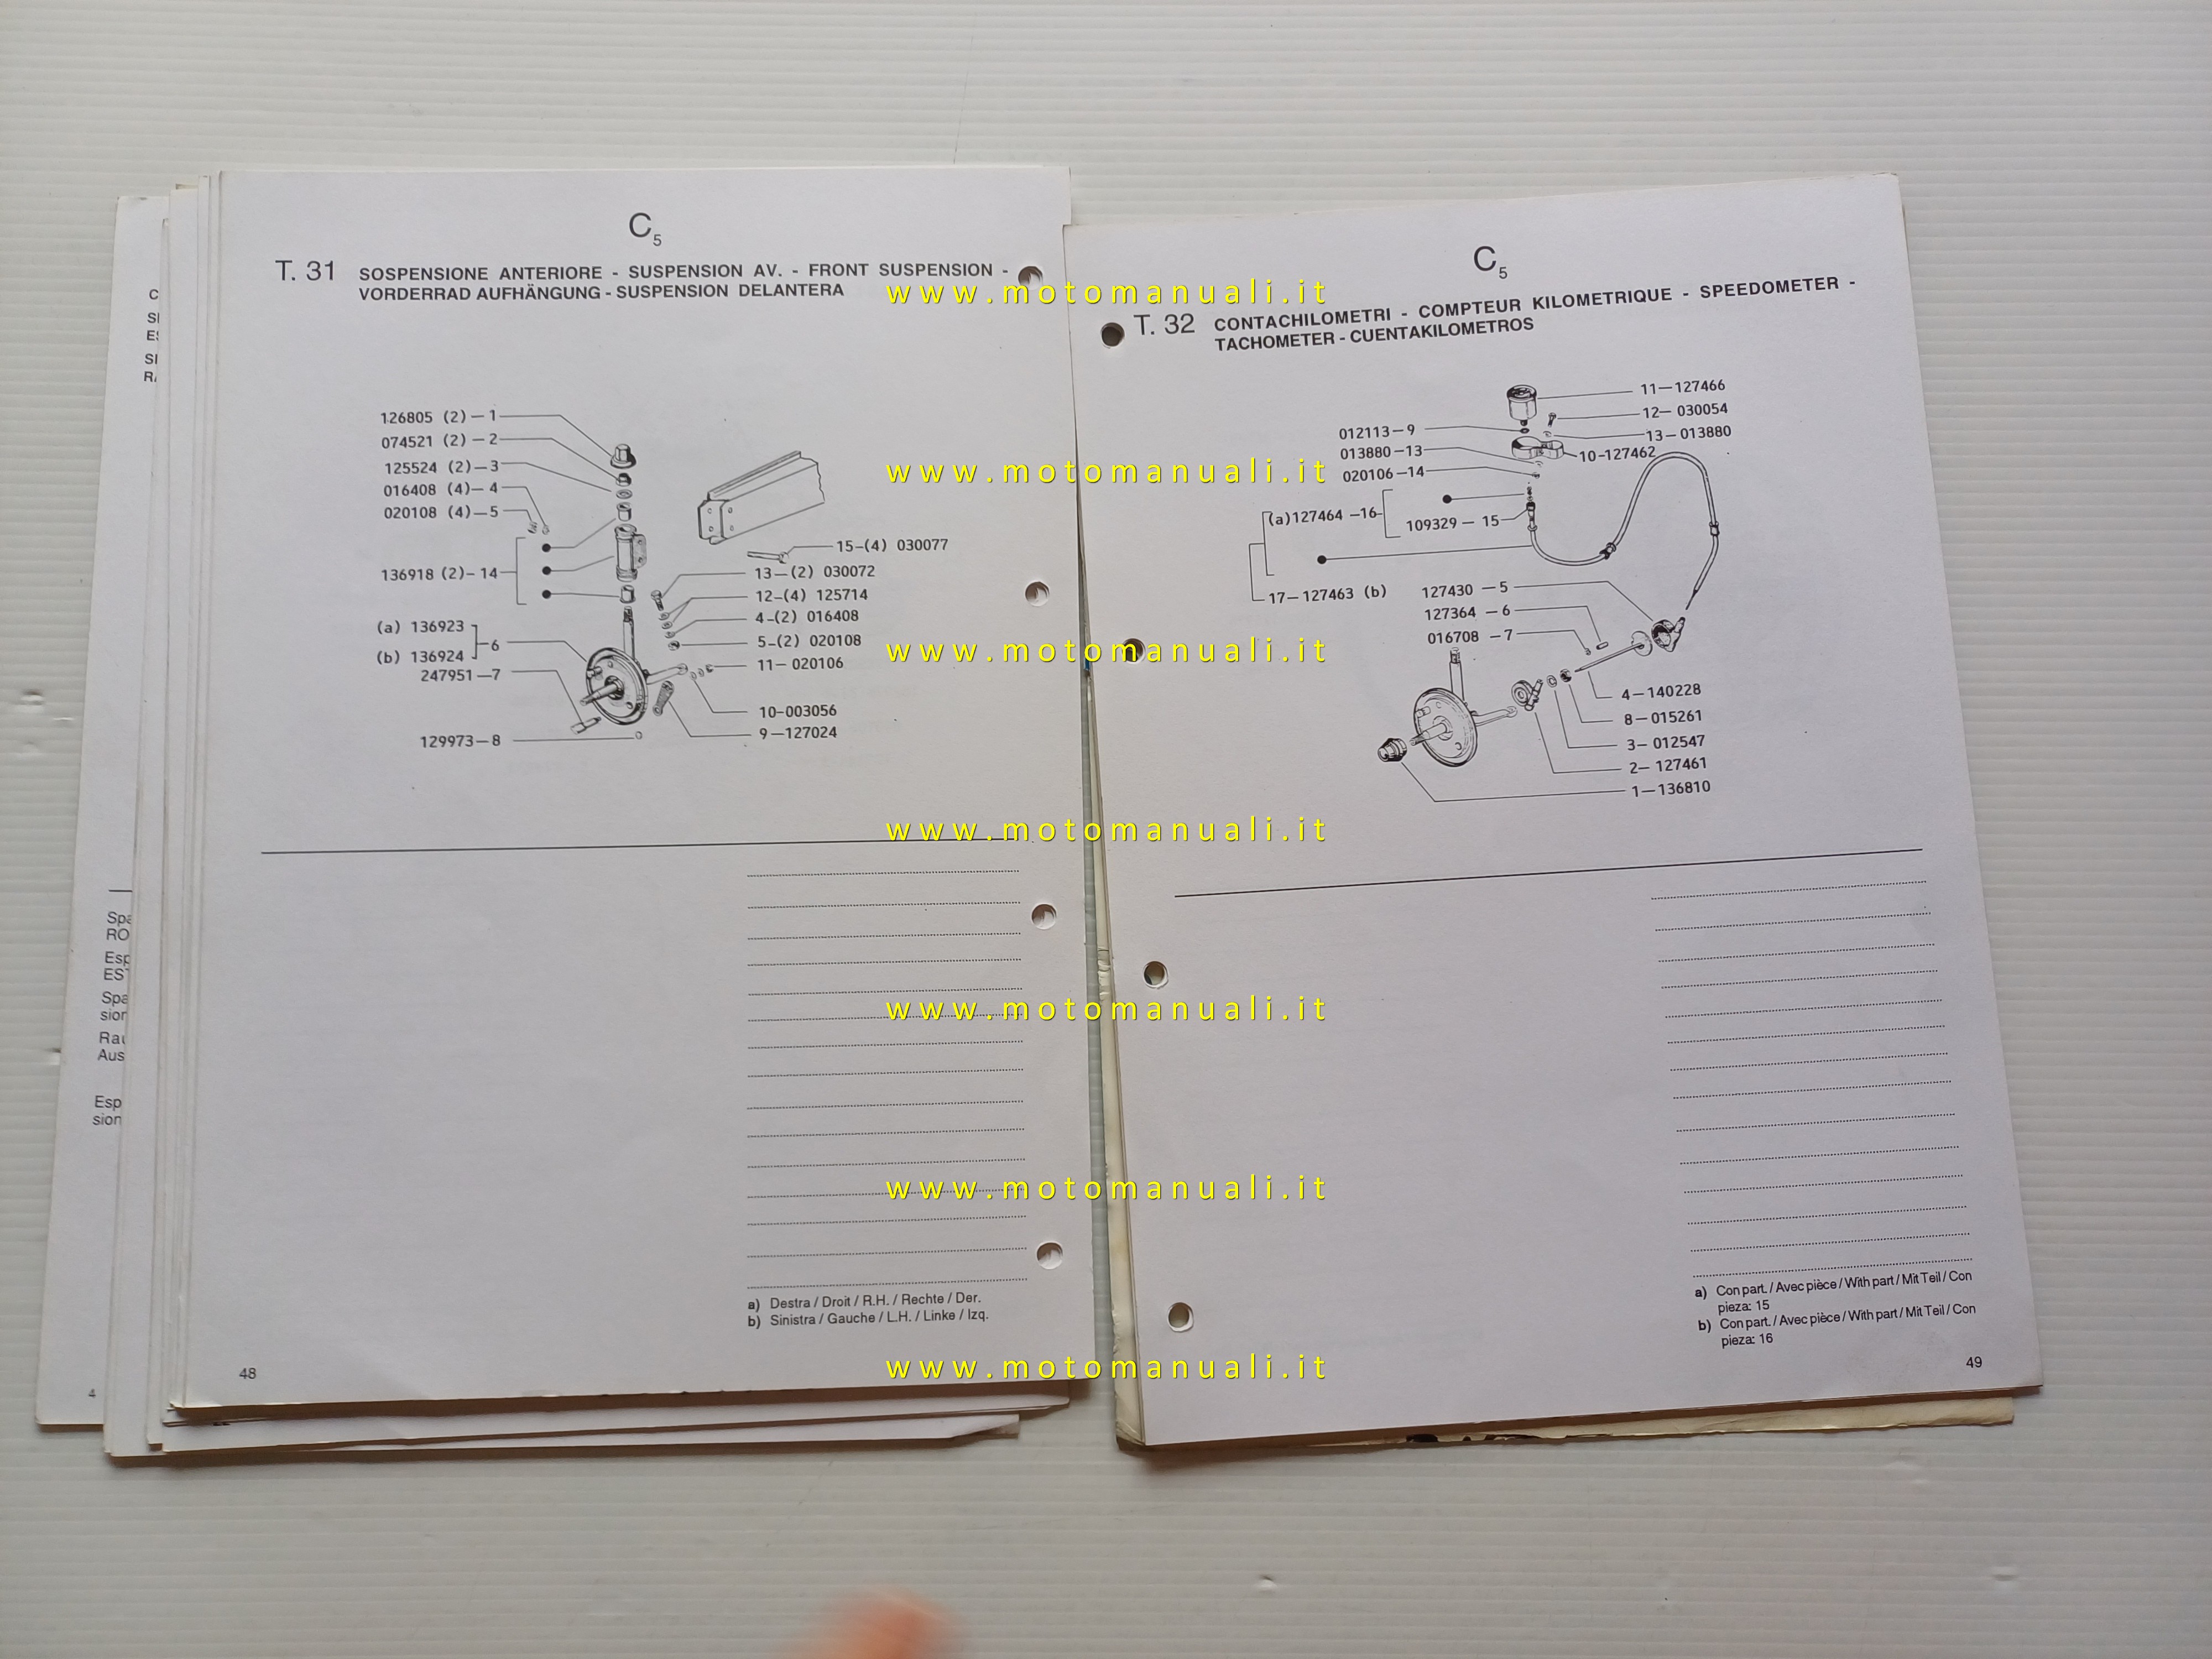 C5
T. 31 SOSPENSIONE ANTERIORE - SUSPENSION AV. - FRONT SUSPENSION -
VORDERRAD AUFHÄNGUNG - SUSPENSION DELANTERA
126805 (2) — 1
074521 (2) — 2
125524 (2) — 3
016408 (4) — 4
020108 (4) — 5
136918 (2) - 14
(a) 136923
6
(b) 136924
247951 — 7
129973 — 8
15-(4) 030077
13-(2) 030072
12-(4) 125714
4-(2) 016408
5-(2) 020108
11- 020106
10-003056
9-127024
a) Destra / Droit / R.H. / Rechte / Der.
b) Sinistra / Gauche / L.H. / Linke / Izq.
48
C5
T. 32 CONTACHILOMETRI - COMPTEUR KILOMETRIQUE - SPEEDOMETER -
TACHOMETER - CUENTAKILOMETROS
11-127466
12- 030054
13-013880
10-127462
012113-9
013880-13
020106-14
(a) 127464 -16
109329 - 15
17-127463 (b)
127430 - 5
127364 - 6
016708 - 7
4-140228
8-015261
3- 012547
2- 127461
1-136810
a) Con part. / Avec pièce / With part / Mit Teil / Con
pieza: 15
b) Con part. / Avec pièce / With part / Mit Teil / Con
pieza: 16
49
www.motomanuali.it
www.motomanuali.it
www.motomanuali.it
www.motomanuali.it
www.motomanuali.it
www.motomanuali.it
www.motomanuali.it